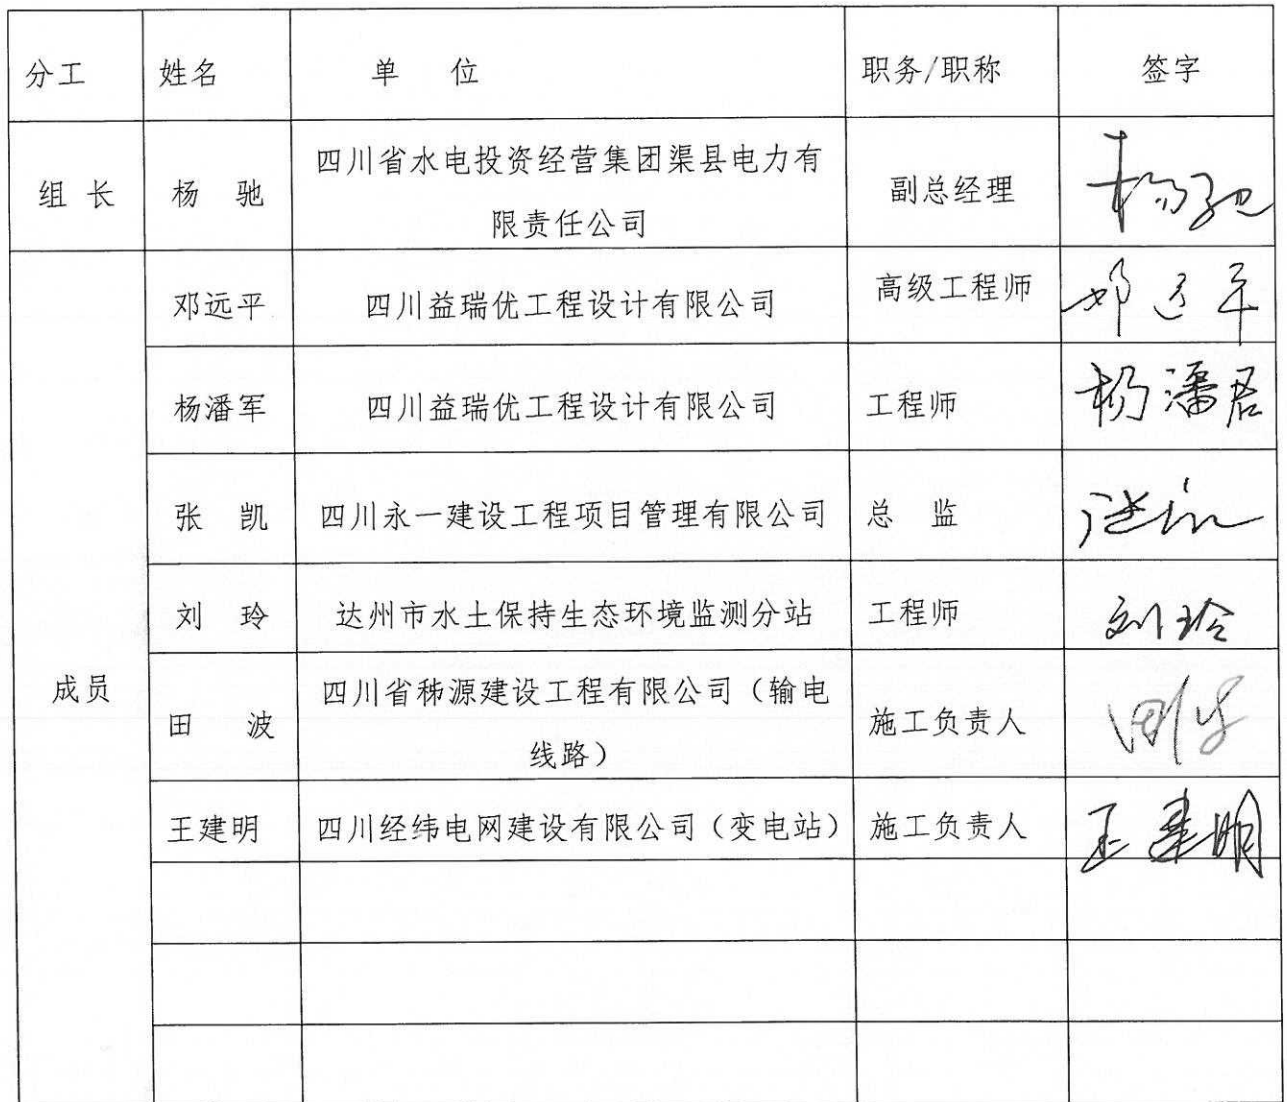 分工 姓名 单 位 职务/职称 签字
四川省水电投资经营集团渠县电力有
组 长 杨 驰 副总经理 杨驰
限责任公司
邓远平 四川益瑞优工程设计有限公司 高级工程师 邓远平
杨潘军 四川益瑞优工程设计有限公司 工程师 杨潘君
张 凯 四川永一建设工程项目管理有限公司 总 监
刘 玲 达州市水土保持生态环境监测分站 工程师 刘玲
成员
四川省秭源建设工程有限公司（输电
田 波 施工负责人 田波
线路）
王建明 四川经纬电网建设有限公司（变电站） 施工负责人 王建明